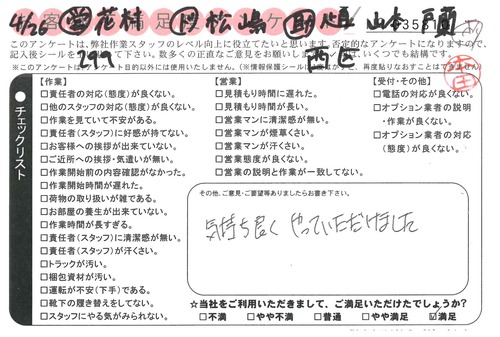 4/26 営 花村 ド 松嶋 助 山本
799 西区
このアンケートは、弊社作業スタッフのレベル向上に役立てたいと思います。否定的なアンケートになりますので、
※このアンケートはアンケート目的以外には使用いたしません。
チェックリスト
【作業】
□責任者の対応(態度)が良くない。
□他のスタッフの対応(態度)が良くない。
□作業を見ていて不安がある。
□責任者(スタッフ)に好感が持てない。
□お客様への挨拶が出来ていない。
□ご近所への挨拶・気遣いが無い。
□作業開始前の内容確認がなかった。
□作業開始時間が遅れた。
□荷物の取り扱いが雑である。
□お部屋の養生が出来ていない。
□作業時間が長すぎる。
□責任者(スタッフ)に清潔感が無い。
□責任者(スタッフ)が汗くさい。
□トラックが汚い。
□梱包資材が汚い。
□運転が不安(下手)である。
□靴下の履き替えをしてない。
□スタッフにやる気がみられない。
【営業】
□見積もり時間に遅れた。
□見積もり時間が長い。
□営業マンに清潔感が無い。
□営業マンが煙草くさい。
□営業マンが汗くさい。
□営業態度が良くない。
□営業の説明と作業が一致してない。
【受付・その他】
□電話の対応が良くない。
□オプション業者の説明
・作業が良くない。
□オプション業者の対応
(態度)が良くない。
その他、ご意見・ご要望等ありましたらお書き下さい。
気持ち良く やっていただけました
☆当社をご利用いただきまして、ご満足いただけたでしょうか?
□不満 □やや不満 □普通 □やや満足 ☑満足